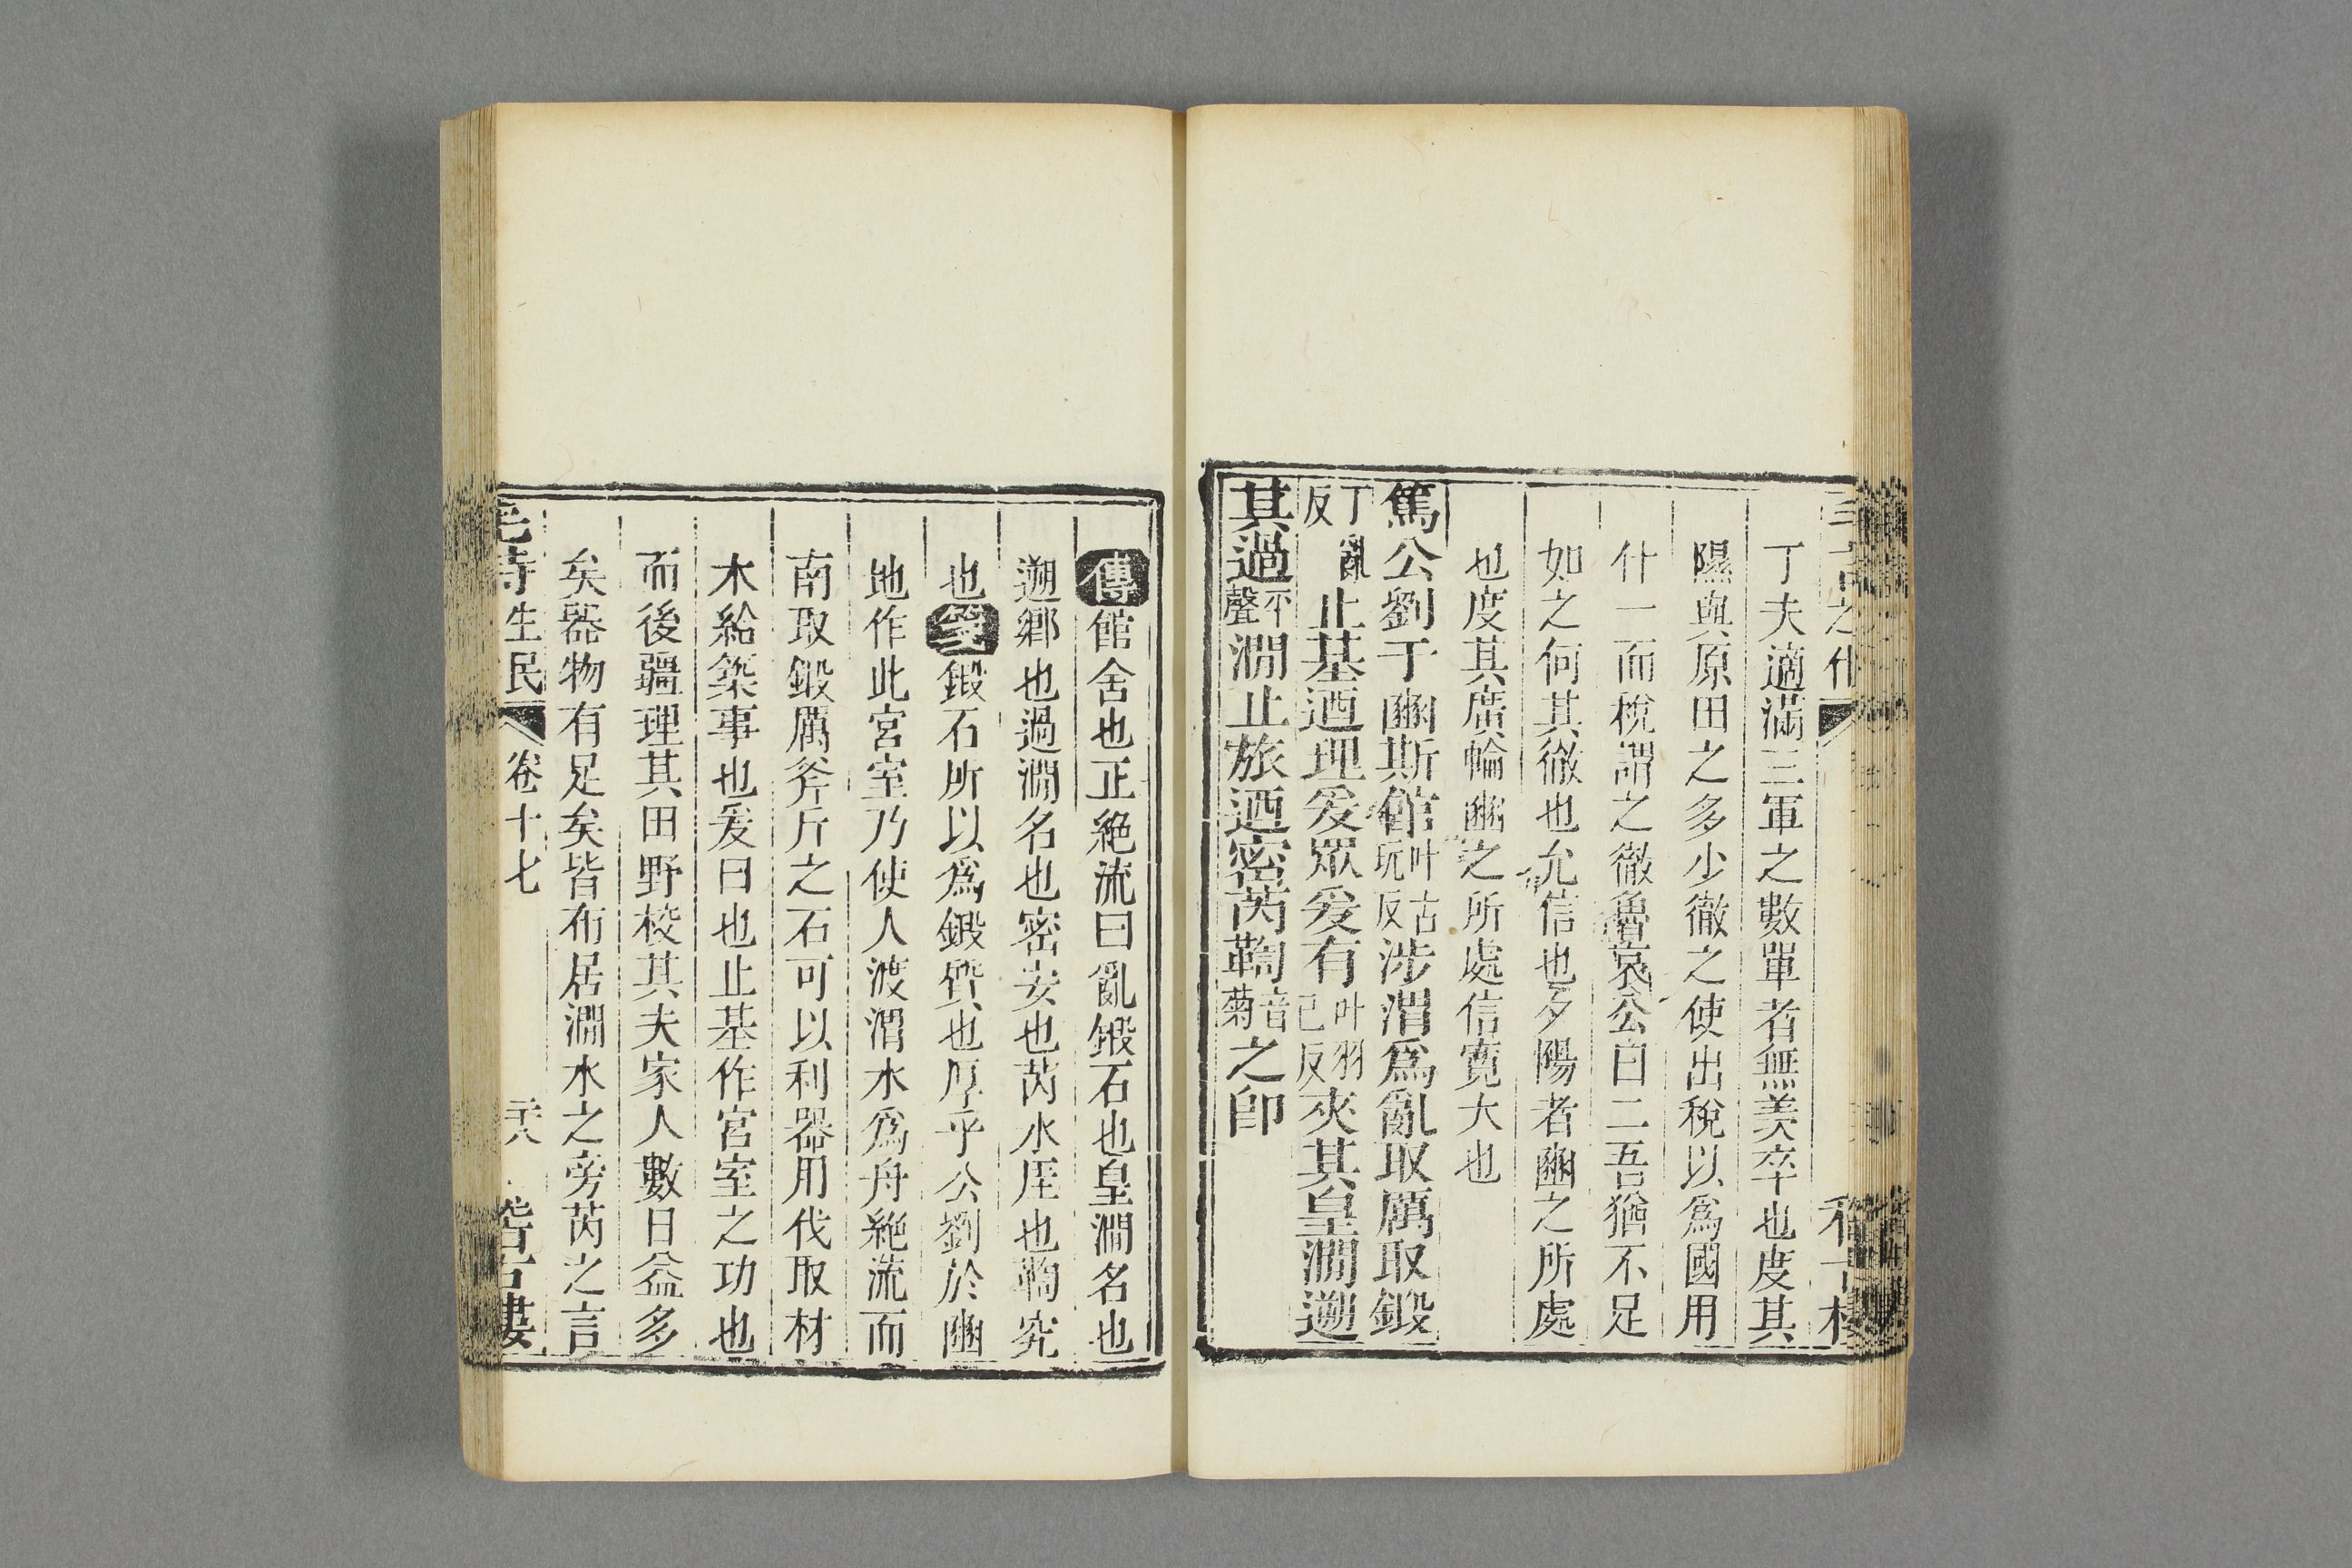 丁夫適滿三軍之數單者無羨卒也度其
隰與原田之多少徹之使出稅以爲國用
什一而稅謂之徹魯哀公曰二吾猶不足
如之何其徹也允信也夕陽者豳之所處
也度其廣輪豳之所處信寬大也
篤公劉于豳斯館叶古玩反涉渭爲亂取厲取鍛
丁亂反止基迺理爰眾爰有叶羽己反夾其皇澗遡
其過平聲澗止旅迺密芮鞫音菊之即
傳館舍也正絶流曰亂鍛石也皇澗名也
遡鄉也過澗名也密安也芮水厓也鞫究
也箋鍛石所以爲鍛質也厚乎公劉於豳
地作此宮室乃使人渡渭水爲舟絶流而
南取鍛厲斧斤之石可以利器用伐取材
木給築事也爰曰也止基作宮室之功也
而後疆理其田野校其夫家人數日益多
矣器物有足矣皆布居澗水之旁芮之言
毛詩生民 卷十七 二十八